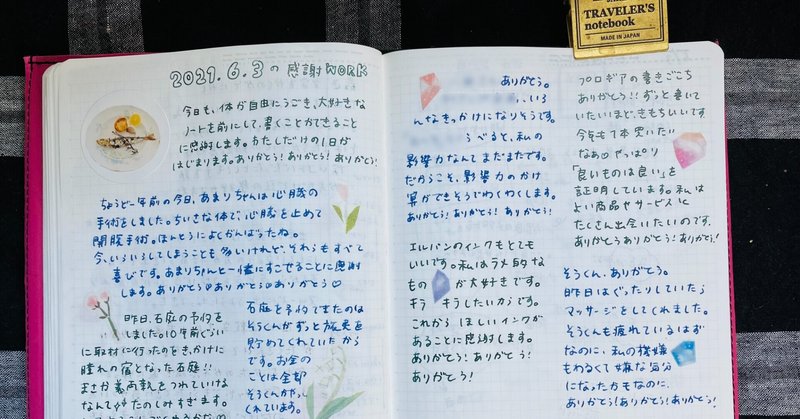 TRAVELER'S
notebook
MADE IN JAPAN
2021.6.3の感謝WORK
今日も、体が自由にうごき、大好きな
ノートを前にして、書くことができること
に感謝します。あたしだけの1日が
はじまります。ありがとう!ありがとう!ありがとう!
ちょうど一年前の今日、あまりちゃんは心臓の
手術をしました。ちいさな体で、心臓を止めて
開腹手術。ほんとうによくがんばったね。
今、いろいろしてしまうことも多いけれど、それらもすべて
喜びです。あまりちゃんと一緒にすごせることに感謝
します。ありがとう♡ありがとう♡ありがとう♡
昨日、石庭の予約を
しました。10年前ぐらい
に取材に行ったのをきっかけに
憧れの宿となった石庭!!
まさか義両親をつれていける
なんて たのしみすぎます。
石庭を予約できたのは
そうくんがずっと旅費を
貯めてくれていたから
です。お金の
ことは全部
そうくんがやっ
くれています。
ありがとう。
いろ
んなきっかけになりそうです。
うべると、私の
影響力なんてまだまだです。
だからこそ、影響力のかけ
算ができそうでわくわくします。
ありがとう!ありがとう!ありがとう!
エルバンのインクもとても
いいです。私はラメ的な
もの が大好きです。
キラ キラしたいからです。
これから ほしいインクが
あることに感謝します。
ありがとう!ありがとう!
ありがとう!
フロロギアの書きごこち
ありがとう!!ずっと書いて
いたいほど、きもちいいです
今年も1本買いたい
なぁ♡やっぱり
「良いものは良い」を
証明しています。私は
よい商品やサービスに
たくさん出会いたいのです。
ありがとうありがとう!ありがとう!
そうくん、ありがとう。
昨日はぐったりしていたら
マッサージをしてくれました。
そうくんも疲れているはず
なのに、私の機嫌
もわるくて嫌な気分
になったかもなのに、
ありがとう!ありがとう!ありがとう!